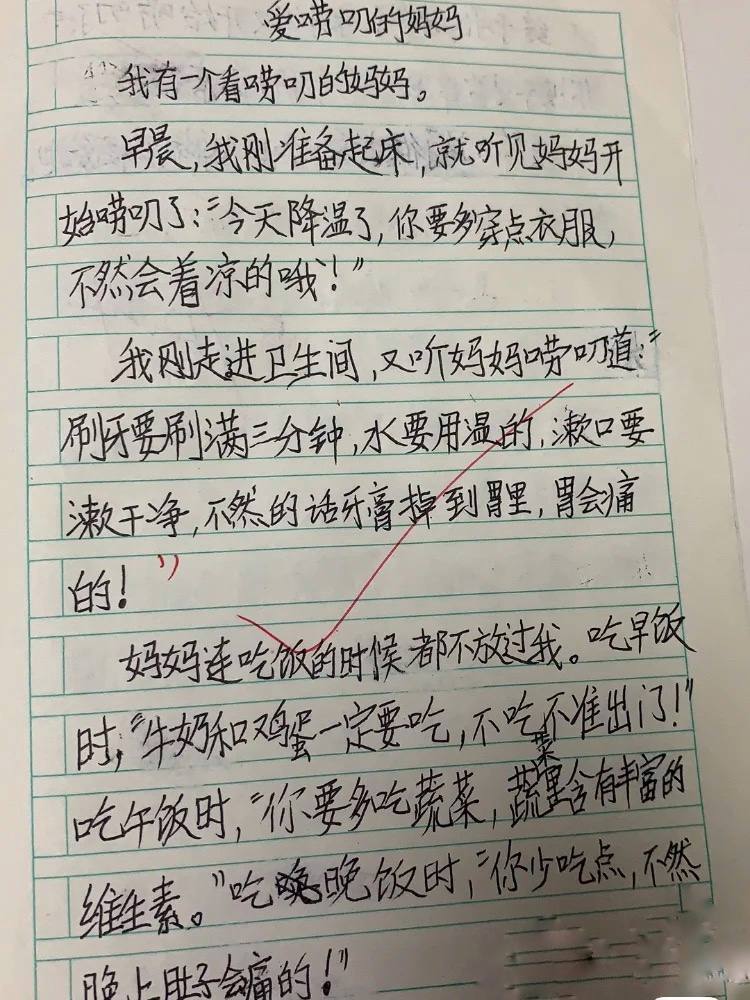 爱唠叨的妈妈
我有一个看唠叨的妈妈。
早晨,我刚准备起床,就听见妈妈开
始唠叨了:“今天降温了,你要多穿点衣服,
不然会着凉的哦!”
我刚走进卫生间,又听妈妈唠叨道:“
刷牙要刷满三分钟,水要用温的,漱口要
漱干净,不然的话牙膏掉到胃里,胃会痛
的!”
妈妈连吃饭的时候都不放过我。吃早饭
时,“牛奶和鸡蛋一定要吃,不吃不准出门!”
吃午饭时,“你要多吃蔬菜,蔬菜里含有丰富的
维生素。”吃晚饭时,“你少吃点,不然
晚上肚子会痛的!”